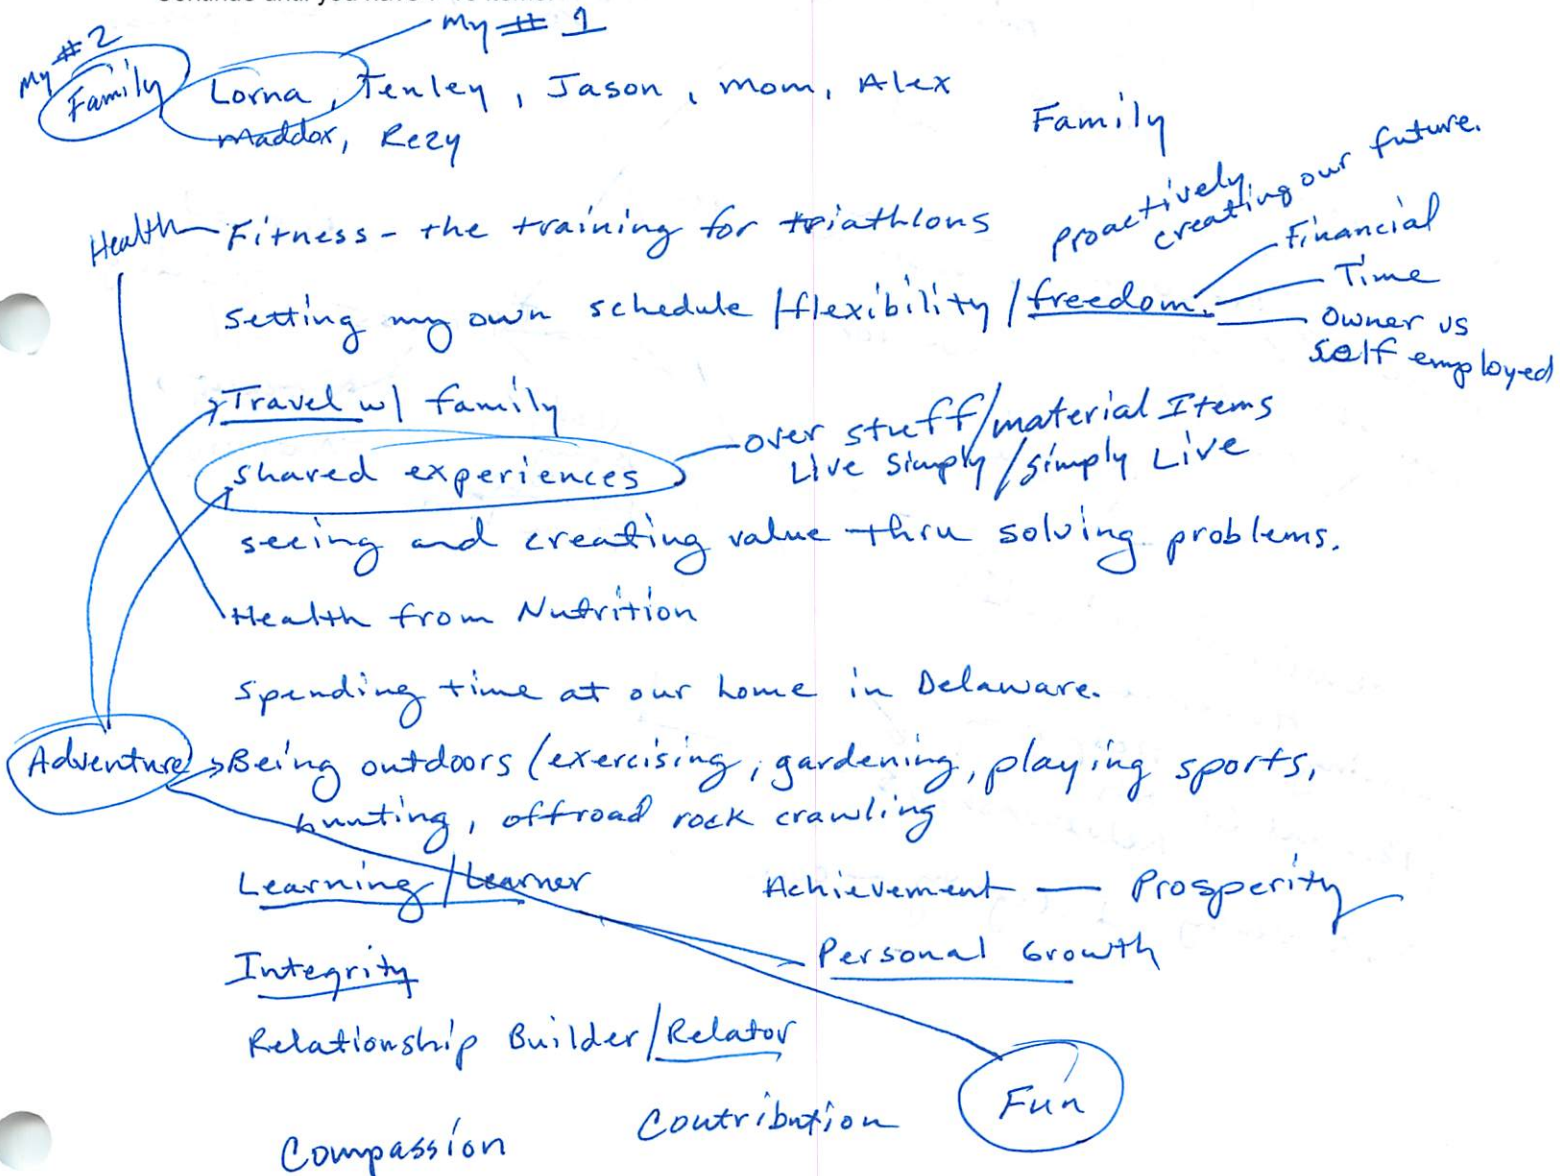 My # 1
My #2
Family Lorna, Tenley, Jason, mom, Alex
Maddox, Rezy
Family
proactively creating our future.
Health Fitness - the training for triathlons
setting my own schedule /flexibility/freedom.
Financial
Time
Owner vs
Self employed
Travel w/ family
shared experiences
over stuff/material Items
Live Simply/simply Live
seeing and creating value thru solving problems.
Health from Nutrition
spending time at our home in Delaware.
Adventure Being outdoors (exercising, gardening, playing sports,
hunting, offroad rock crawling
Learning/Learner
Achievement — Prosperity
Personal Growth
Integrity
Relationship Builder/Relator
Fun
Contribution
Compassion